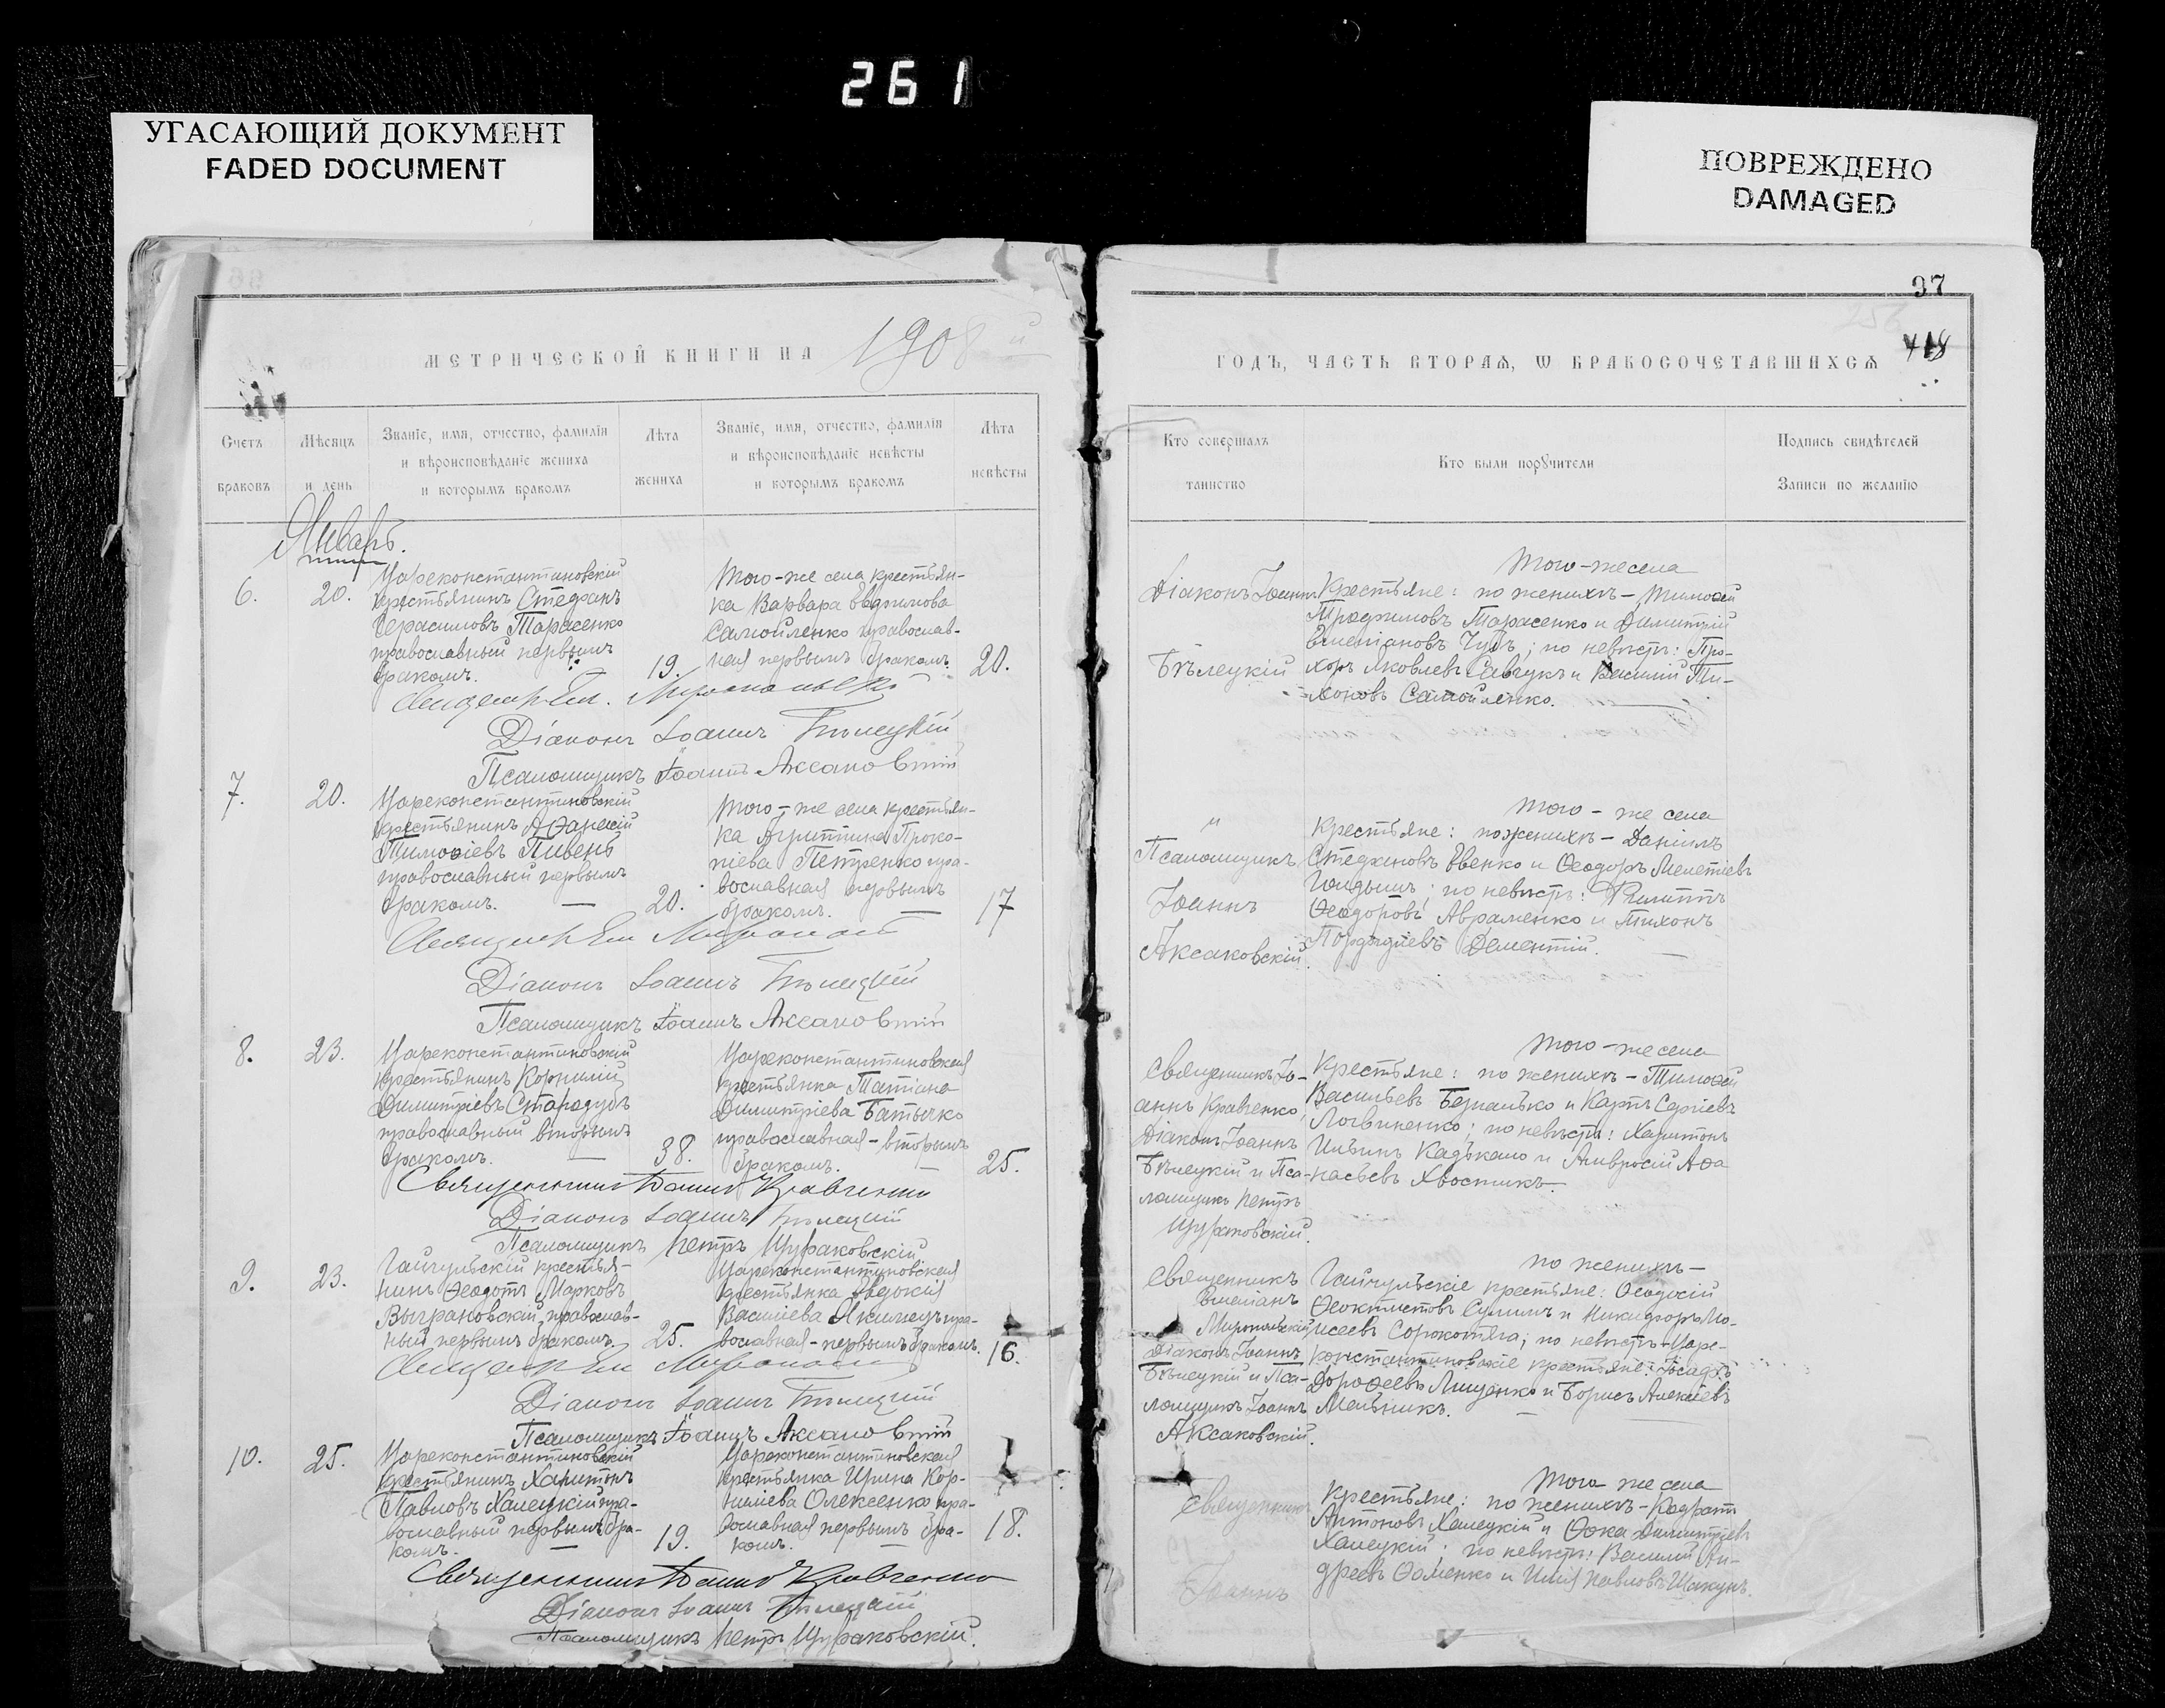 261
УГАСАЮЩИЙ ДОКУМЕНТ
FADED DOCUMENT
ПОВРЕЖДЕНО
DAMAGED
МЕТРИЧЕСКОЙ КНИГИ НА 1908 й
Счетъ браковъ
Мѣсяцъ и день
Званіе, имя, отчество, фамилія
и вѣроисповѣданіе жениха
и которымъ бракомъ
Лѣта жениха
Званіе, имя, отчество, фамилія
и вѣроисповѣданіе невѣсты
и которымъ бракомъ
Лѣта невѣсты
Январь.
6.
20.
Цареконстантиновскій
крестьянинъ Стефанъ
Герасимовъ Тарасенко
православный первымъ
бракомъ.
19.
Того-же села крестьян-
ка Варвара Евфимова
Самойленко православ-
ная первымъ бракомъ.
20.
Діаконъ Іоаннъ Бѣлецкій
Псаломщикъ Іоаннъ Аксаковскій
7.
20.
Цареконстантиновскій
крестьянинъ Аѳанасій
Тимоѳіевъ Пивень
православный первымъ
бракомъ. —
20.
Того-же села крестьян-
ка Агриппина Проко-
піева Петренко пра-
вославная первымъ
бракомъ. —
17
Діаконъ Іоаннъ Бѣлецкій
Псаломщикъ Іоаннъ Аксаковскій
8.
23.
Цареконстантиновскій
крестьянинъ Корнилій
Димитріевъ Стародубъ
православный вторымъ
бракомъ. —
38.
Цареконстантиновская
крестьянка Татіана
Димитріева Батычко
православная - вторымъ
бракомъ. —
25.
Священникъ Іоаннъ Кравченко
Діаконъ Іоаннъ Бѣлецкій
Псаломщикъ Петръ Щураковскій
9.
23.
Гайчульскій крестья-
нинъ Ѳеодотъ Марковъ
Выграновскій, православ-
ный первымъ бракомъ.
25.
Цареконстантиновская
крестьянка Евдокія
Василіева Якимецъ пра-
вославная - первымъ бракомъ.
16.
Діаконъ Іоаннъ Бѣлецкій
Псаломщикъ Іоаннъ Аксаковскій
10.
25.
Цареконстантиновскій
крестьянинъ Харитонъ
Павловъ Халецкій пра-
вославный первымъ бра-
комъ. —
19.
Цареконстантиновская
крестьянка Ирина Кор-
ниліева Олексенко пра-
вославная первымъ бра-
комъ. —
18.
Священникъ Іоаннъ Кравченко
Діаконъ Іоаннъ Бѣлецкій
Псаломщикъ Петръ Щураковскій.
37
ГОДЪ, ЧАСТЬ ВТОРАѦ, Ѡ БРАКОСОЧЕТАВШИХСѦ
Кто совершалъ таинство
Кто были порꙋчители
Подпись свидѣтелей
Записи по желанію
Діаконъ Іоаннъ
Бѣлецкій
Того-же села
Крестьяне: по женихѣ - Тимоѳей
Трофимовъ Тарасенко и Димитрій
Емеліановъ Чубъ; по невѣстѣ: Про-
хоръ Яковлевъ Савчукъ и Василій Ти-
хоновъ Самойленко.
Псаломщикъ
Іоаннъ
Аксаковскій.
Того - же села
Крестьяне: по женихѣ - Даніилъ
Стефановъ Евенко и Ѳеодоръ Мелетіевъ
по невѣстѣ: Филиппъ
Ѳеодоровъ Авраменко и Тихонъ
Дементій. —
Священникъ Іо-
аннъ Кравченко,
Діаконъ Іоаннъ
Бѣлецкій и Пса-
ломщикъ Петръ
Щураковскій.
Того - же села
Крестьяне: по женихѣ - Тимоѳей
Васильевъ Безпалько и Карпъ Сергіевъ
Логвиненко; по невѣстѣ: Харитонъ
Ильинъ и Амвросій Аѳа-
насьевъ Хвостикъ.
Священникъ
Емеліанъ
Миропольскій
Діаконъ Іоаннъ
Бѣлецкій и Пса-
ломщикъ Іоаннъ
Аксаковскій.
по женихѣ —
Гайчульскіе крестьяне: Ѳеодосій
Ѳеоктистовъ Сулимъ и Никифоръ Мо-
исеевъ Сорокотяга; по невѣстѣ - Царе-
константиновскіе крестьяне: Іосафъ
Дороѳеевъ Лященко и Борисъ Алексіевъ
Мельникъ. —
Священникъ
Іоаннъ
Того же села
Крестьяне: по женихѣ - Кодратъ
Антоновъ Халецкій и Ѳока Димитріевъ
Халецкій; по невѣстѣ: Василій Ан-
дреевъ Ѳоменко и Илія Павловъ Шакунъ.